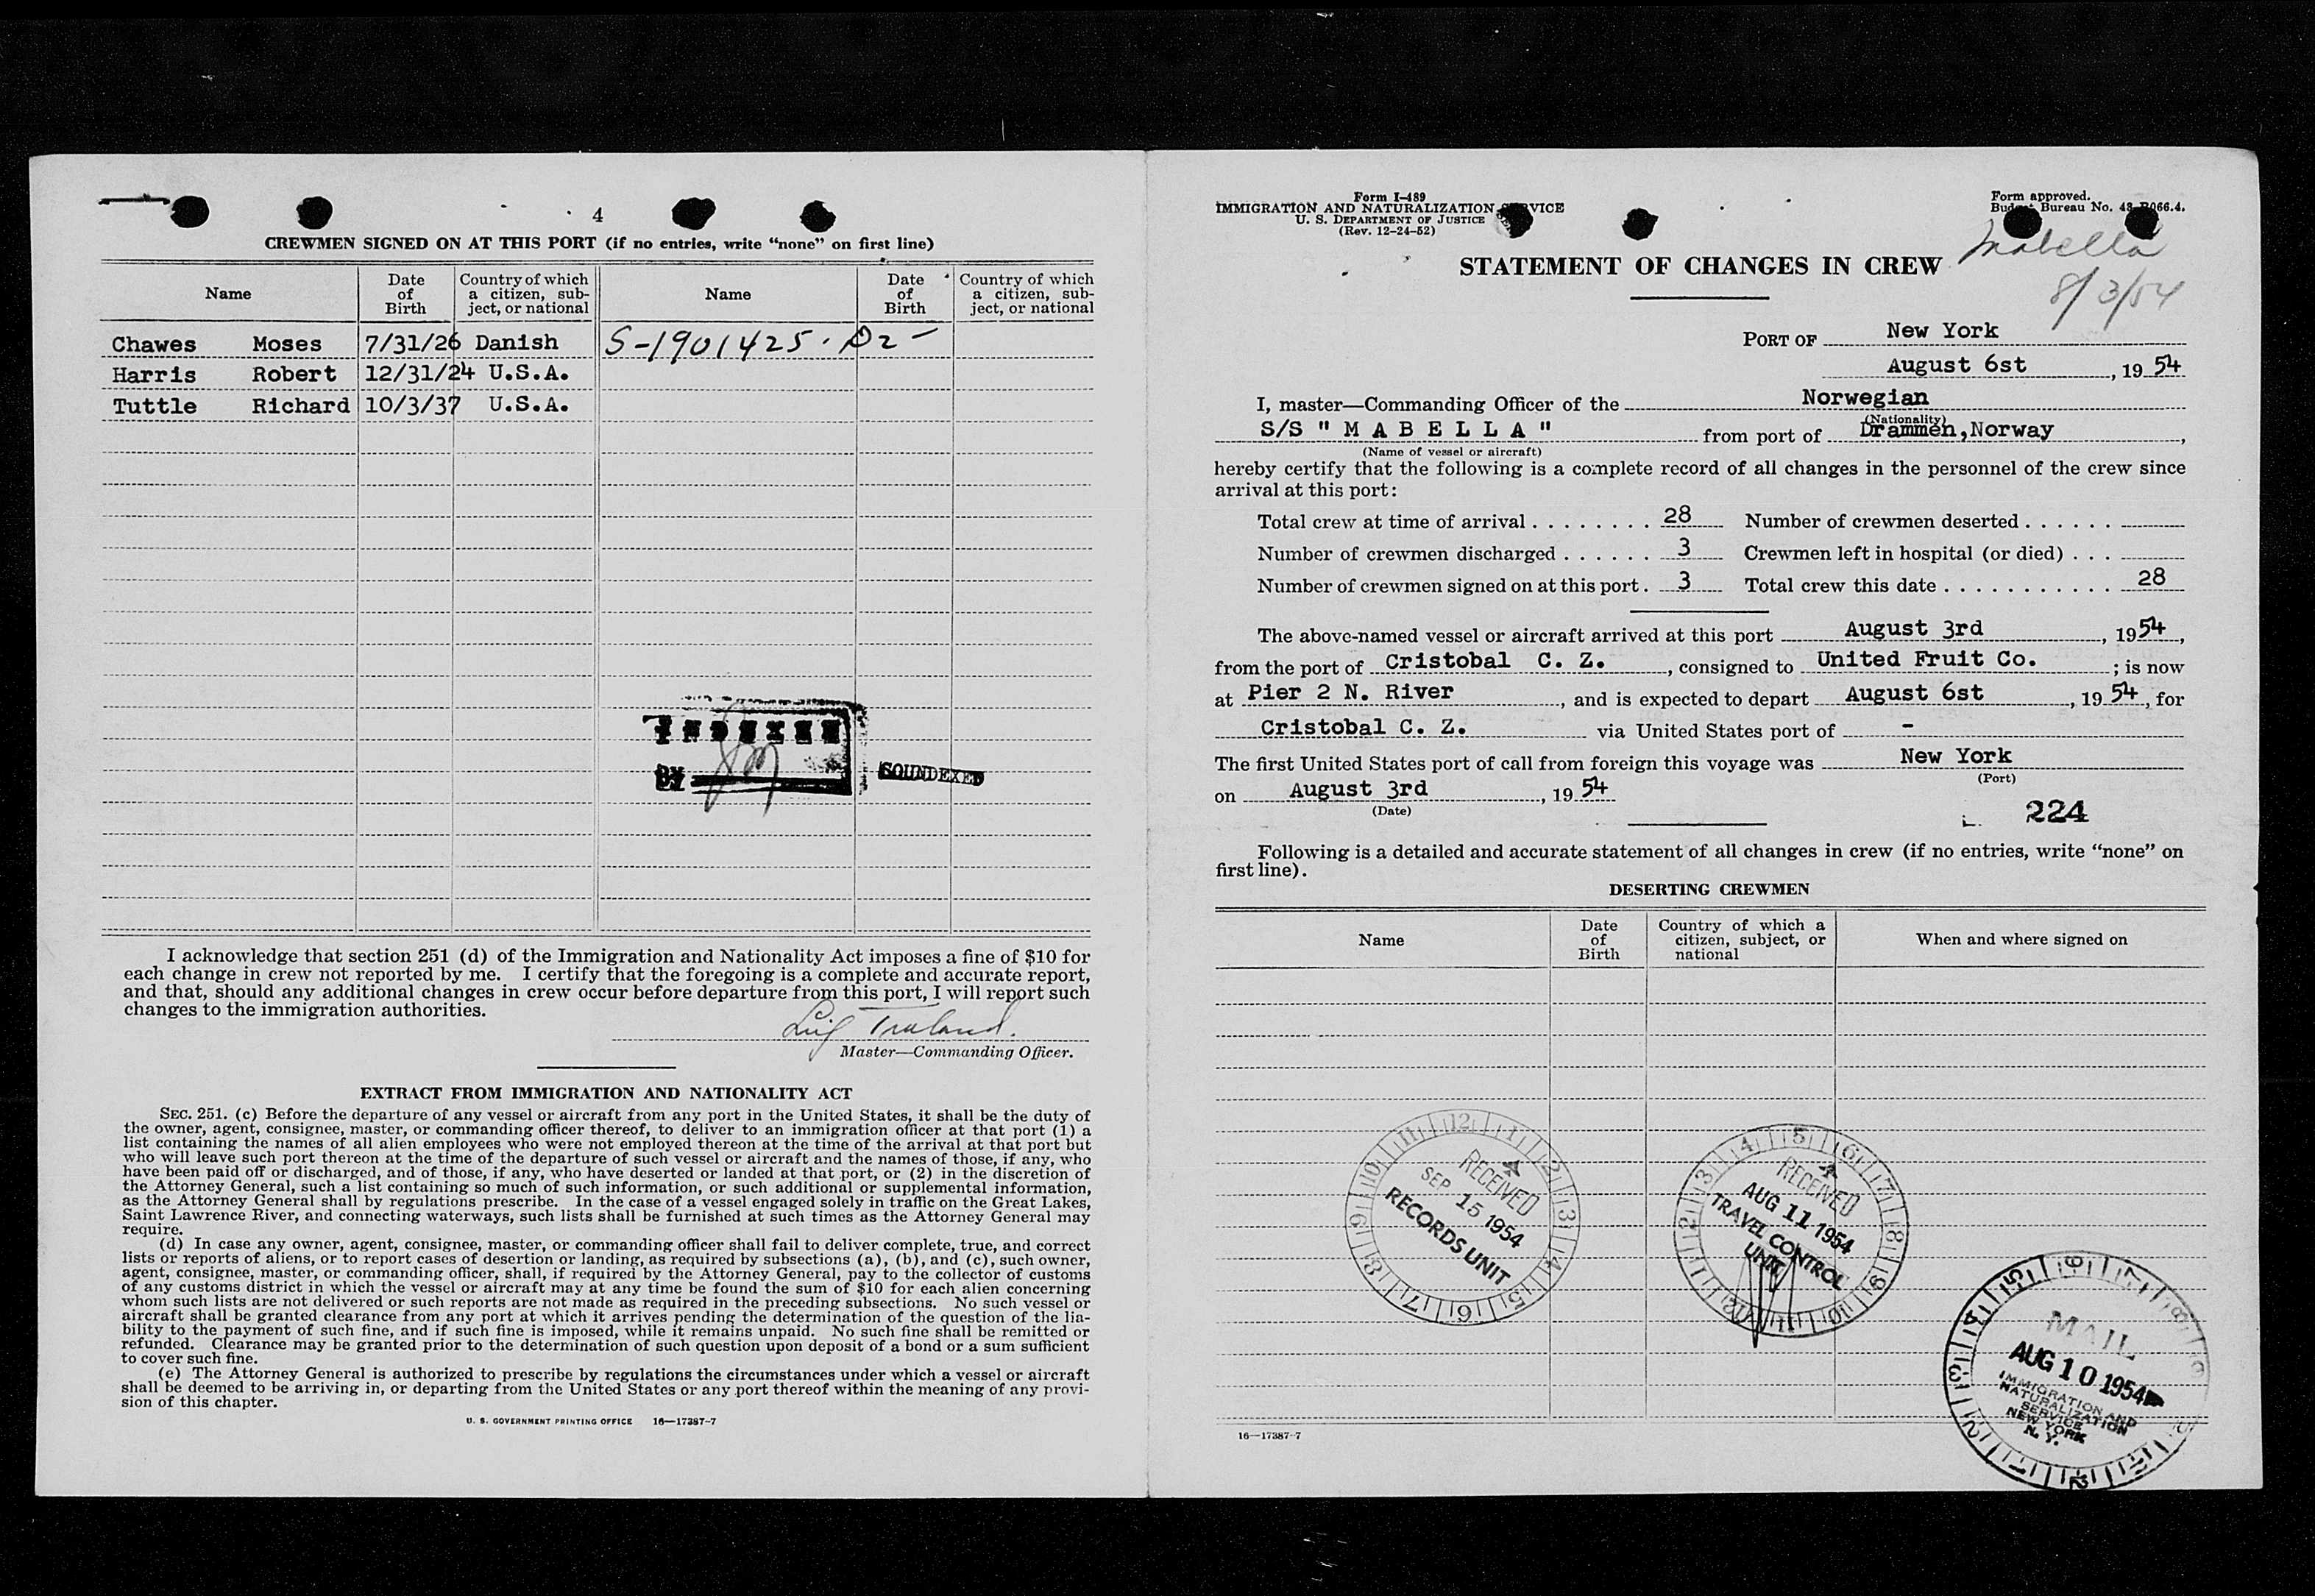 4
CREWMEN SIGNED ON AT THIS PORT (if no entries, write “none” on first line)
Name
Date of Birth
Country of which a citizen, subject, or national
Name
Date of Birth
Country of which a citizen, subject, or national
Chawes Moses 7/31/26 Danish S-1901425.
Harris Robert 12/31/24 U.S.A.
Tuttle Richard 10/3/37 U.S.A.
INDEXED
BY
SOUNDEXED
I acknowledge that section 251 (d) of the Immigration and Nationality Act imposes a fine of $10 for
each change in crew not reported by me. I certify that the foregoing is a complete and accurate report,
and that, should any additional changes in crew occur before departure from this port, I will report such
changes to the immigration authorities.
Master—Commanding Officer.
EXTRACT FROM IMMIGRATION AND NATIONALITY ACT
SEC. 251. (c) Before the departure of any vessel or aircraft from any port in the United States, it shall be the duty of
the owner, agent, consignee, master, or commanding officer thereof, to deliver to an immigration officer at that port (1) a
list containing the names of all alien employees who were not employed thereon at the time of the arrival at that port but
who will leave such port thereon at the time of the departure of such vessel or aircraft and the names of those, if any, who
have been paid off or discharged, and of those, if any, who have deserted or landed at that port, or (2) in the discretion of
the Attorney General, such a list containing so much of such information, or such additional or supplemental information,
as the Attorney General shall by regulations prescribe. In the case of a vessel engaged solely in traffic on the Great Lakes,
Saint Lawrence River, and connecting waterways, such lists shall be furnished at such times as the Attorney General may
require.
(d) In case any owner, agent, consignee, master, or commanding officer shall fail to deliver complete, true, and correct
lists or reports of aliens, or to report cases of desertion or landing, as required by subsections (a), (b), and (c), such owner,
agent, consignee, master, or commanding officer, shall, if required by the Attorney General, pay to the collector of customs
of any customs district in which the vessel or aircraft may at any time be found the sum of $10 for each alien concerning
whom such lists are not delivered or such reports are not made as required in the preceding subsections. No such vessel or
aircraft shall be granted clearance from any port at which it arrives pending the determination of the question of the lia-
bility to the payment of such fine, and if such fine is imposed, while it remains unpaid. No such fine shall be remitted or
refunded. Clearance may be granted prior to the determination of such question upon deposit of a bond or a sum sufficient
to cover such fine.
(e) The Attorney General is authorized to prescribe by regulations the circumstances under which a vessel or aircraft
shall be deemed to be arriving in, or departing from the United States or any port thereof within the meaning of any provi-
sion of this chapter.
U. S. GOVERNMENT PRINTING OFFICE 16—17387-7
Form I-489
IMMIGRATION AND NATURALIZATION SERVICE
U. S. DEPARTMENT OF JUSTICE
(Rev. 12-24-52)
Form approved.
Budget Bureau No. 43-R066.4.
Mabella
8/3/54
STATEMENT OF CHANGES IN CREW
PORT OF New York
August 6st, 1954
I, master—Commanding Officer of the Norwegian
(Nationality)
S/S " M A B E L L A " from port of Drammen, Norway,
(Name of vessel or aircraft)
hereby certify that the following is a complete record of all changes in the personnel of the crew since
arrival at this port:
Total crew at time of arrival ........ 28 Number of crewmen deserted ......
Number of crewmen discharged ...... 3 Crewmen left in hospital (or died) ...
Number of crewmen signed on at this port. 3 Total crew this date ........... 28
The above-named vessel or aircraft arrived at this port August 3rd, 1954,
from the port of Cristobal C. Z., consigned to United Fruit Co.; is now
at Pier 2 N. River, and is expected to depart August 6st, 1954, for
Cristobal C. Z. via United States port of -
The first United States port of call from foreign this voyage was New York
(Port)
on August 3rd, 1954
(Date)
224
Following is a detailed and accurate statement of all changes in crew (if no entries, write “none” on
first line).
DESERTING CREWMEN
Name
Date of Birth
Country of which a citizen, subject, or national
When and where signed on
RECEIVED
SEP 15 1954
RECORDS UNIT
RECEIVED
AUG 11 1954
TRAVEL CONTROL
UNIT
MAIL
AUG 10 1954
IMMIGRATION AND
NATURALIZATION
SERVICE
NEW YORK
N. Y.
16—17387-7